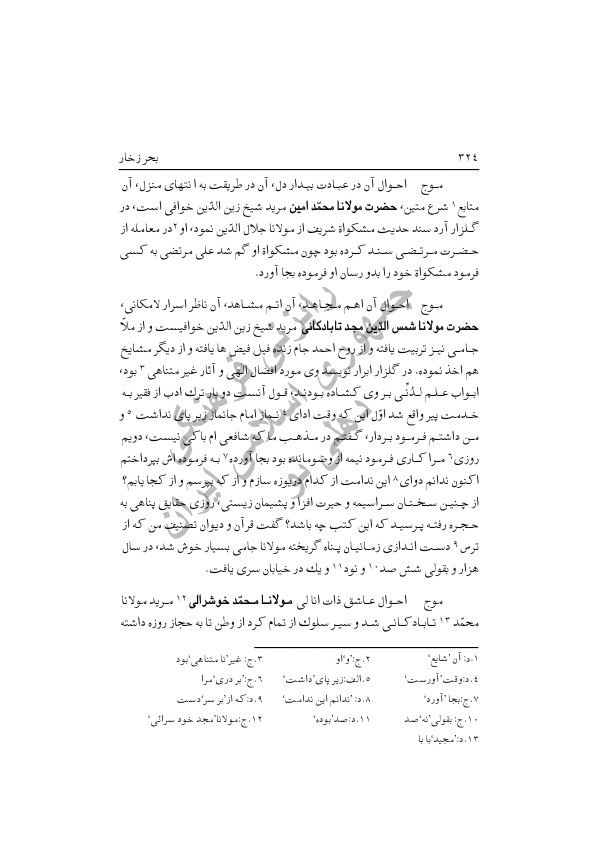 ۳۲٤ بحر زخار
مـوج احـوال آن در عبـادت بیـدار دل، آن در طریقت به انتهای منزل، آن
متابع۱ شرع متین، حضرت مولانا محمّد امین مرید شیخ زین الدّین خوافی است، در
گـلزار آرد سند حدیث مشکواة شریف از مولانا جلال الدّین نمود، او۲ در معامله از
حضـرت مرتضـی سـند کـرده بود چون مشکواة او گم شد علی مرتضی به کسی
فرمود مشکواة خود را بدو رسان او فرموده بجا آورد.
مـوج احـوال آن اهـم مـجـاهـد، آن اتـم مشـاهد، آن ناظر اسرار لامکانی،
حضرت مولانا شمس الدّین مجد تابادکانی مرید شیخ زین الدّین خوافیست و از ملاّ
جـامـی نیـز تربیت یافته و از روح احمد جام زنده فیل فیض ها یافته و از دیگر مشایخ
هم اخذ نموده. در گلزار ابرار نویسد وی مورد افضال الهی و آثار غیر متناهی ۳ بود،
ابـواب عـلـم لـدُنّـی بـر وی کشـاده بـودنـد، قـول آنسـت دو بار ترك ادب از فقیر بـه
خـدمت پیر واقع شد اوّل این که وقت ادای ٤ نماز امام جانماز زیر پای نداشت ٥ و
مـن داشتـم فـرمـود بـردار، گـفتم در مـذهـب ما که شافعی ام باکی نیست، دویم
روزی٦ مـرا کـاری فـرمـود نیمه از وضو مانده بود بجا آورده۷ بـه فرموده اش بپرداختم
اکنون ندانم دوای۸ این ندامت از کدام دریوزه سازم و از که پرسم و از کجا یابم؟
از چـنیـن سـخـنـان سـراسیمه و حیرت افزا و پشیمان زیستی، روزی حقایق پناهی به
حجـره رفتـه پـرسیـد که این کتب چه باشد؟ گفت قرآن و دیوان تصنیف من که از
ترس ۹ دسـت انـدازی زمـانیـان پـناه گریخته مولانا جامی بسیار خوش شد، در سال
هزار و بقولی شش صد۱۰ و نود۱۱ و یك در خیابان سری یافت.
مـوج احـوال عـاشـق ذات انا لی مـولانـا مـحـمّد خوشرالی ۱۲ مـرید مـولانا
محمّد ۱۳ تـابـادکـانـی شـد و سیـر سلوك از تمام کرد از وطن تا به حجاز روزه داشته
۱.د: آن ’شایع‘ ۲.ج:’و‘او ۳.ج: غیر’نا متناهی‘بود
٤.د:وقت’آورست‘ ٥.الف:زیر پای’داشت‘ ٦.ج:’بر دری‘مرا
۷.ج:بجا ’آورد‘ ۸.د: ’ندانم این ندامت‘ ۹.د:که از’بر سر‘دست
۱۰.ج: بقولی’نه‘صد ۱۱.د:صد’بوده‘ ۱۲.ج:مولانا’مجد خود سرائی‘
۱۳.د:’مجید‘با با